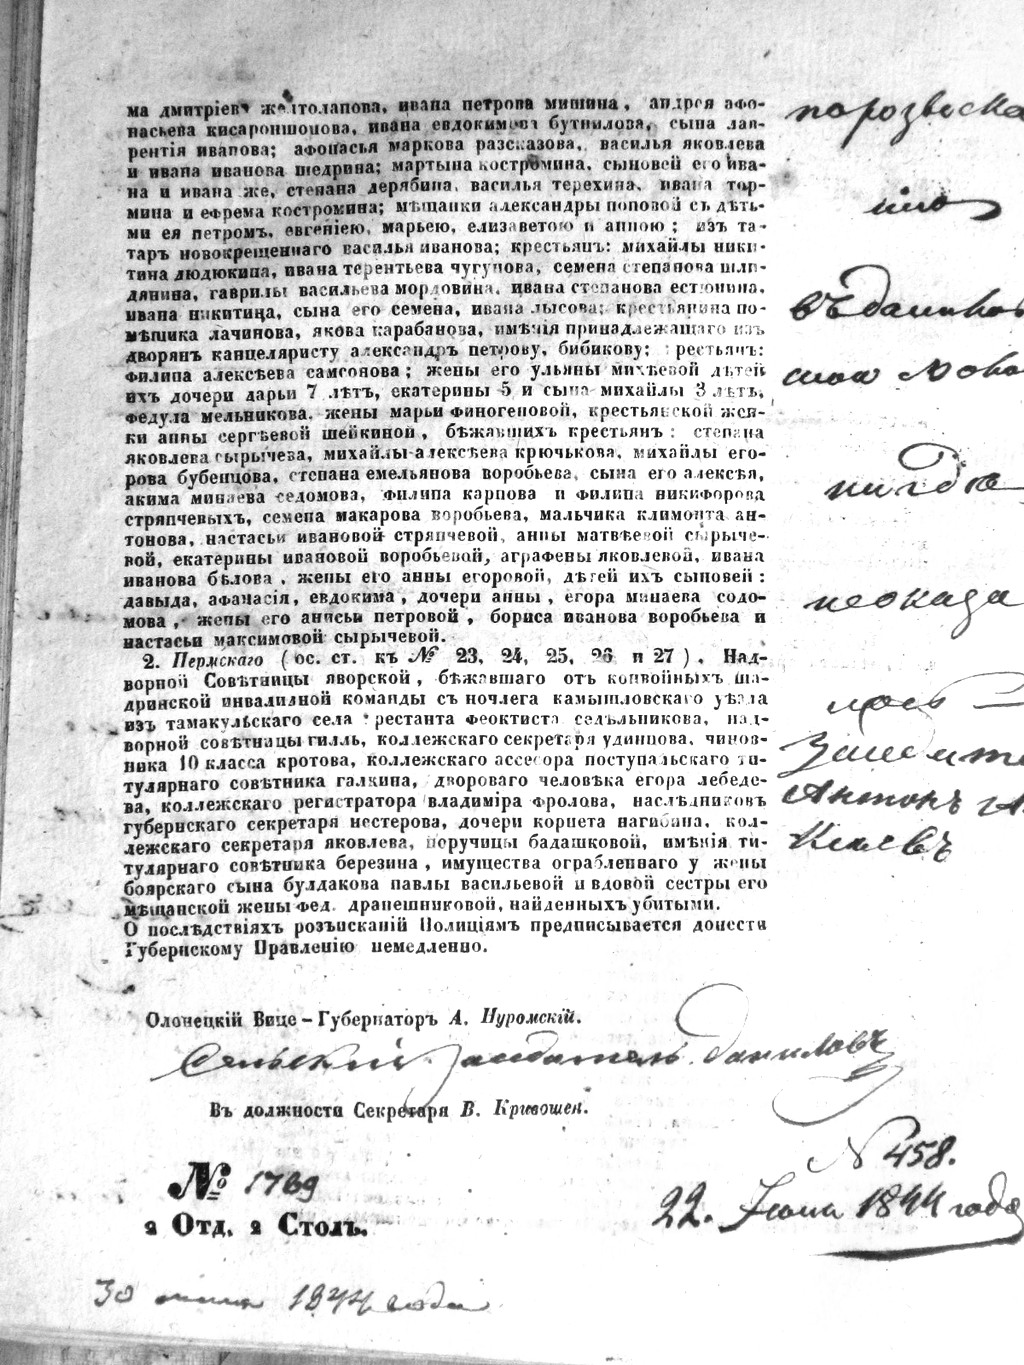 ма дмитріева желтолапова, ивана петрова мишина, андрея афо-
насьева кисароншонова, ивана евдокимова бутнилова, сына лав-
рентія иванова; афонасья маркова разсказова, василья яковлева
и ивана иванова щедрина; мартына костромина, сыновей его ива-
на и ивана же, степана дерябина, василья терехина, ивана тор-
мина и ефрема костромина; мѣщанки александры поповой съ дѣть-
ми ея петромъ, евгеніею, марьею, елизаветою и анною; изъ та-
таръ новокрещеннаго василья иванова; крестьянъ: михайлы ники-
тина людюкина, ивана терентьева чугунова, семена степанова шли-
дянина, гаврилы васильева мордовина, ивана степанова естюнина,
ивана никитина, сына его семена, ивана лысова; крестьянина по-
мѣщика лачинова, якова карабанова, имѣнія принадлежащаго изъ
дворянъ канцеляристу александръ петрову, бибикову; крестьянъ:
филипа алексѣева самсонова; жены его ульяны михѣевой дѣтей
ихъ дочери дарьи 7 лѣтъ, екатерины 5 и сына михайлы 3 лѣтъ,
федула мельникова, жены марьи финогеновой, крестьянской жен-
ки анны сергѣевой шейкиной, бѣжавшихъ крестьянъ: степана
яковлева сырычева, михайлы алексѣева крючькова, михайлы его-
рова бубенцова, степана емельянова воробьева, сына его алексѣя,
акима минаева седомова, филипа карпова и филипа никифорова
стряпчевыхъ, семена макарова воробьева, мальчика климонта ан-
тонова, настасьи ивановой стряпчевой, анны матвѣевой сыряче-
вой, екатерины ивановой воробьевой, аграфены яковлевой, ивана
иванова бѣлова, жены его анны егоровой, дѣтей ихъ сыновей:
давыда, афанасія, евдокима, дочери анны, егора минаева содо-
мова, жены его анисьи петровой, бориса иванова воробьева и
настасьи максимовой сырычевой.
2. Пермскаго (ос. ст. къ № 23, 24, 25, 26 и 27). Над-
ворной Совѣтницы яворской, бѣжавшаго отъ конвойныхъ ша-
дринской инвалидной команды съ ночлега камышловскаго уѣзда
изъ тамакульскаго села арестанта феоктиста седѣльникова, над-
ворной совѣтницы гилль, коллежскаго секретаря удинцова, чинов-
ника 10 класса кротова, коллежскаго ассесора поступальскаго ти-
тулярнаго совѣтника галкина, двороваго человѣка егора лебеде-
ва, коллежскаго регистратора владиміра фролова, наслѣдниковъ
губернскаго секретаря нестерова, дочери корнета нагибина, кол-
лежскаго секретаря яковлева, поручицы бадашковой, имѣнія ти-
тулярнаго совѣтника березина, имущества ограбленнаго у жены
боярскаго сына булдакова павлы васильевой и вдовой сестры его
мѣщанской жены фед. драпешниковой, найденныхъ убитыми.
О послѣдствіяхъ розысканій Полиціямъ предписывается донести
Губернскому Правленію немедленно.
порозыска
нію
въ данков
нигде
неоказа
лось
Заседате
Антонъ
Олонецкій Вице-Губернаторъ А. Нуромскій.
Сельский заседатель Даниловъ
Въ должности Секретаря В. Кривошеи.
№ 1769
2 Отд. 2 Столъ.
N 458.
22. Июня 1844 года
30 июня 1844 года